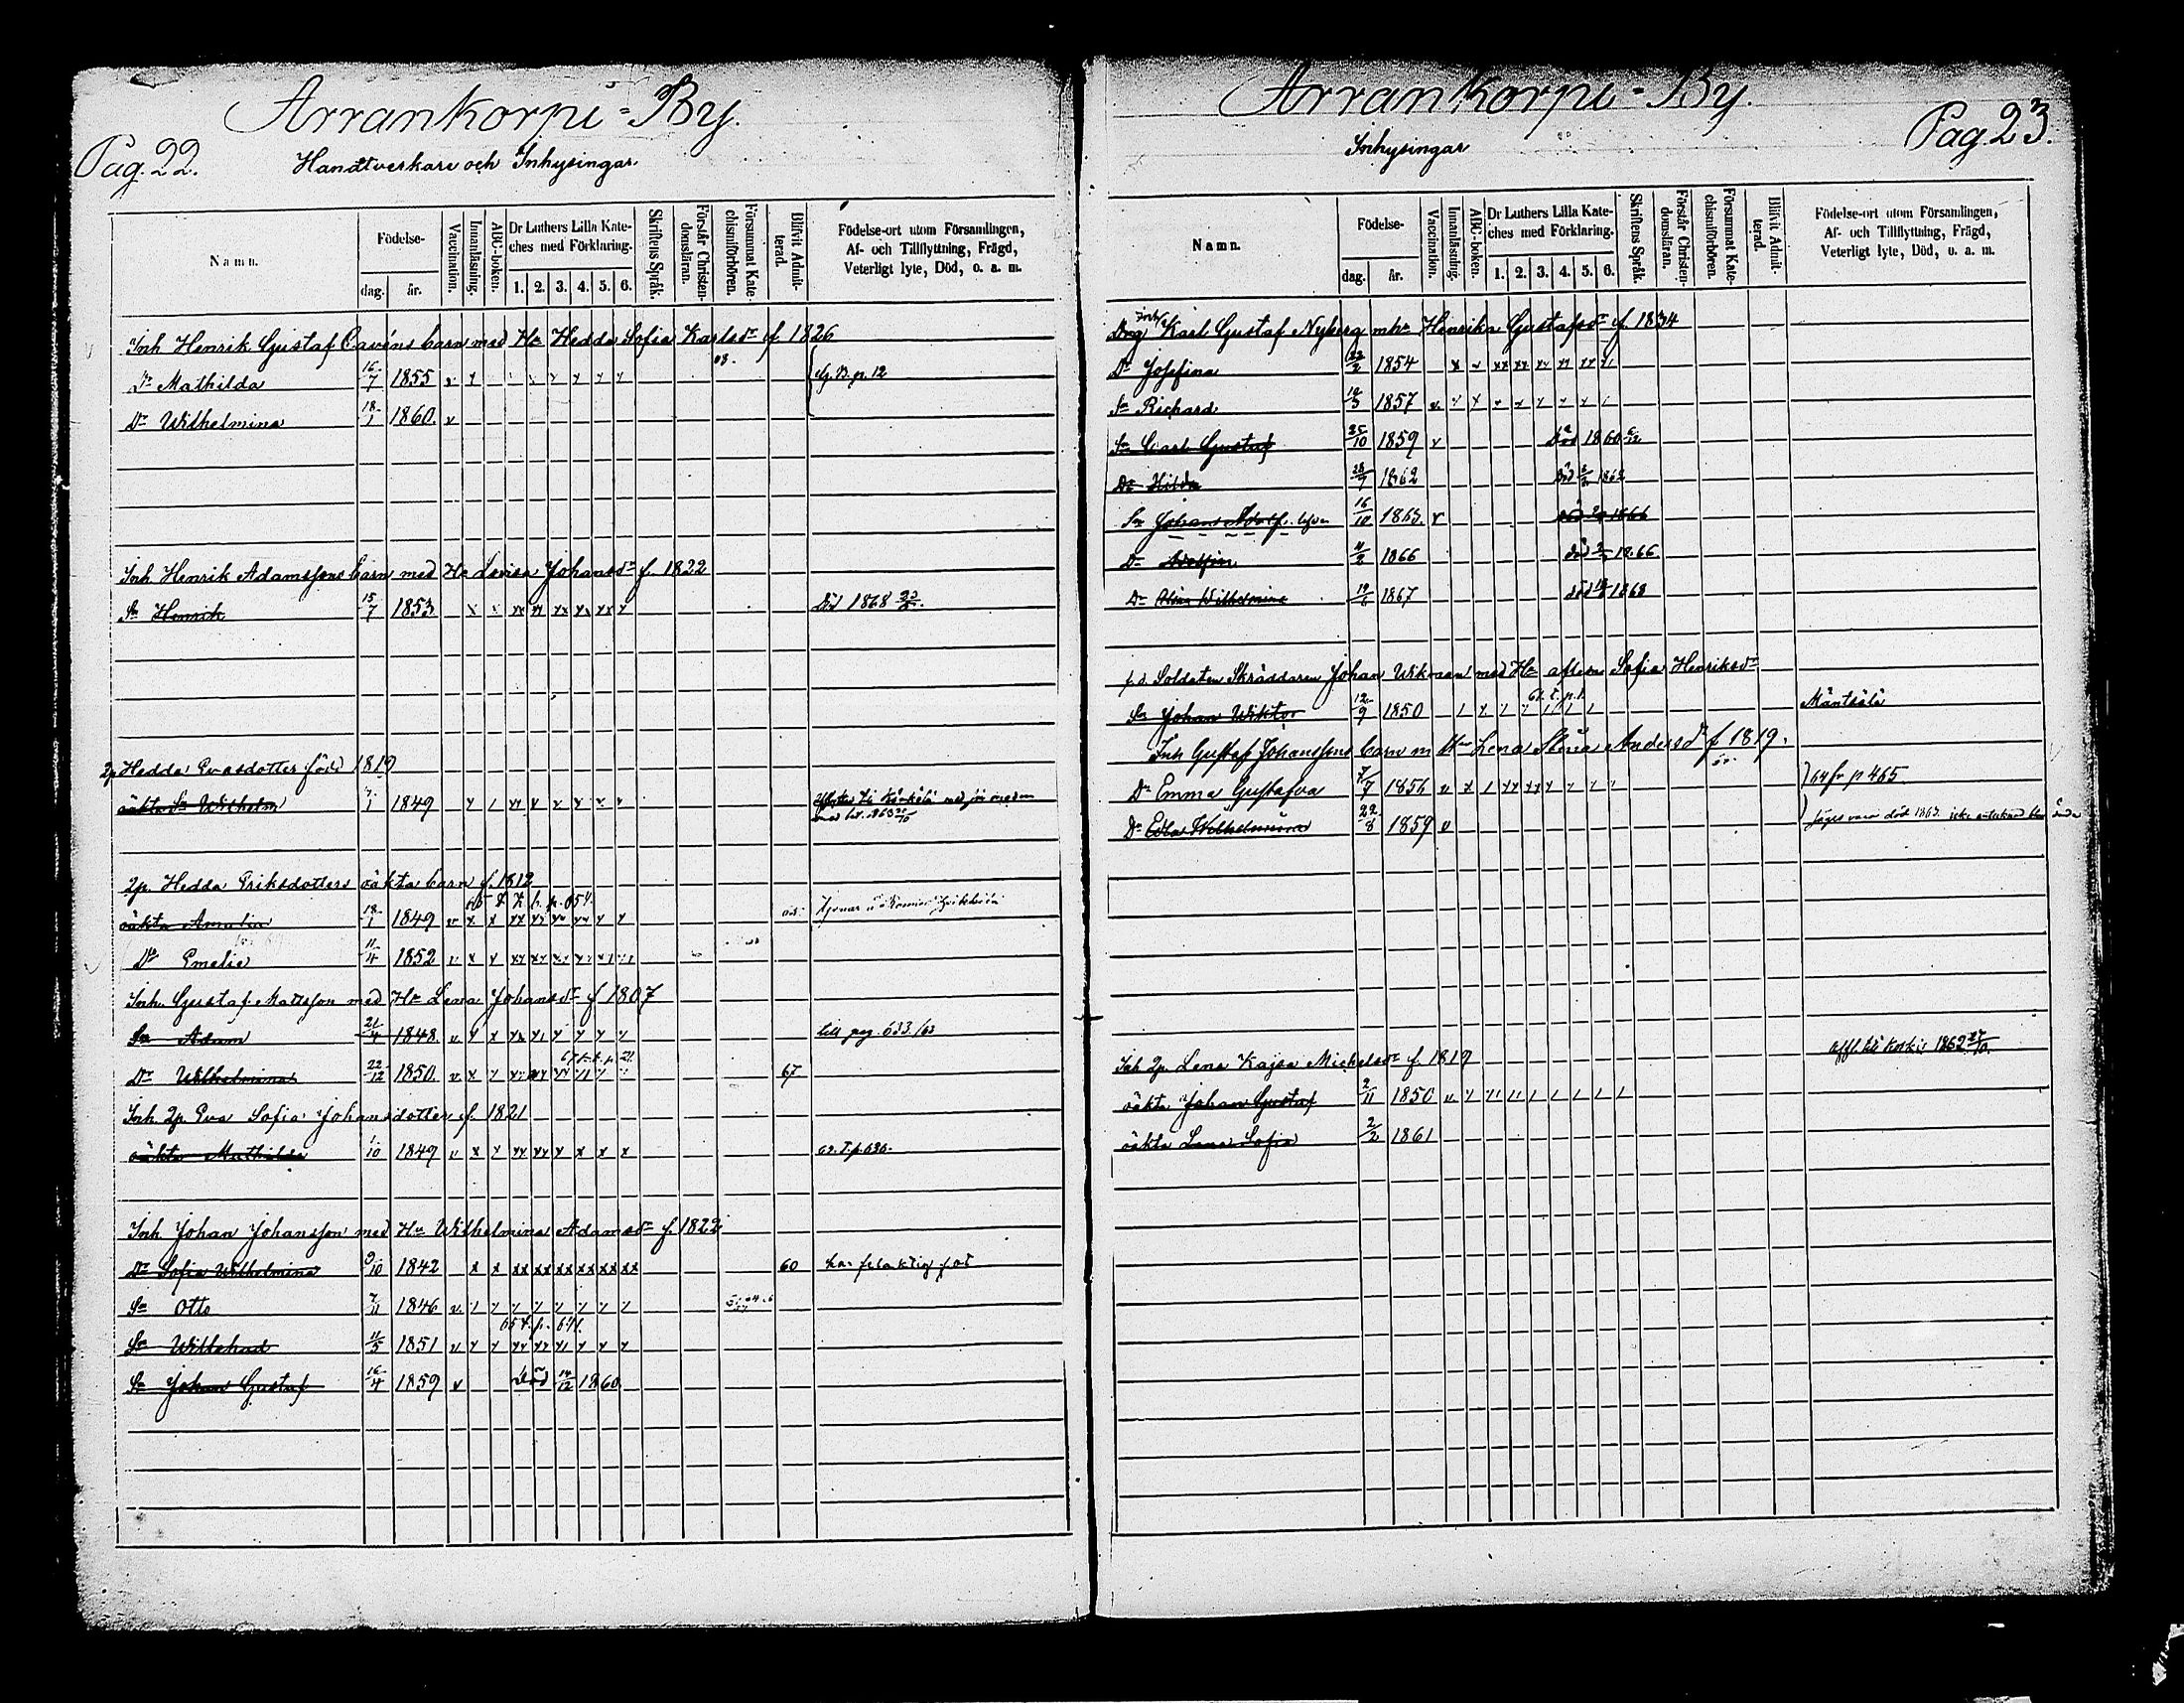 Arrankorpi-By.
Pag. 22.
Handtverkare och Inhysingar
Namn.
Födelse-
dag.
år.
Vaccination.
Innanläsning.
ABC-boken.
Dr Luthers Lilla Kate-
ches med Förklaring.
1. 2. 3. 4. 5. 6.
Skriftens Språk.
Förstår Christen-
domsläran.
Försummat Kate-
chismiförhören.
Blifvit Admit-
terad.
Födelse-ort utom Församlingen,
Af- och Tillflyttning, Frägd,
Veterligt lyte, Död, o. a. m.
Inh Henrik Gustaf Cavéns barn med Hu Hedda Sofia Karlsdr f. 1826
Dr Mathilda 16/7 1855
Dr Wilhelmina 18/1 1860. v
Inh Henrik Adamssons barn med Hu Lovisa Johansdr f. 1822
Sn Henrik 15/7 1853 Död 1868
2p Hedda Evasdotter född 1819
oäkta Sn Wilhelm 1849
2p. Hedda Eriksdotters oäkta barn f. 1812
oäkta Amalia 18/1 1849
Dr Emelie 11/4 1852
Inh. Gustaf Mattsson med Hu Lena Johansdr f 1807
Sn Adam 21/4 1848. till pag. 633/63
Dr Wilhelmina 22/12 1850 67
Inh. 2p. Eva Sofia Johansdotter f. 1821
oäkta Mathilda 1/10 1849
Inh Johan Johansson med Hu Wilhelmina Adamsdr f. 1822
Dr Sofia Wilhelmina 9/10 1842 60
Sn Otto 7/11 1846
Sn Willehad 1851
Sn Johan Gustaf 16/4 1859 v död 14/12 1860
Arrankorpi-By.
Pag. 23.
Inhysingar
Namn.
Födelse-
dag.
år.
Vaccination.
Innanläsning.
ABC-boken.
Dr Luthers Lilla Kate-
ches med Förklaring.
1. 2. 3. 4. 5. 6.
Skriftens Språk.
Förstår Christen-
domsläran.
Försummat Kate-
chismiförhören.
Blifvit Admit-
terad.
Födelse-ort utom Församlingen,
Af- och Tillflyttning, Frägd,
Veterligt lyte, Död, o. a. m.
Inh Karl Gustaf Nyberg m hu Henrika Gustafsdr f. 1834
Dr Josefina 22/2 1854
Sn Richard 1857
Sn Carl Gustaf 25/10 1859 v Död 1860 6/12
Dr Hilda 1862 Död 1862
Sn Johan Adolf 16/10 1863. v död 1866
Dr 1866 död 1866
Dr Wilhelmina 1867 död 1868
f. d. Soldaten Skräddaren Johan Wikman med Hu aflidna Sofia Henriksdr
Sn Johan Wiktor 12/9 1850 Mäntsälä
Inh Gustaf Johanssons barn m Hu Lena Stina Andersdr f 1819.
Dr Emma Gustafva 1856 64 fr p 465
Dr Edla Wilhelmina 22/8 1859 v säges vara död 1863. icke antecknad bland döda
Inh 2p. Lena Kajsa Mickelsdr f. 1819
oäkta Johan Gustaf 2/11 1850
oäkta Lena Sofia 2/2 1861